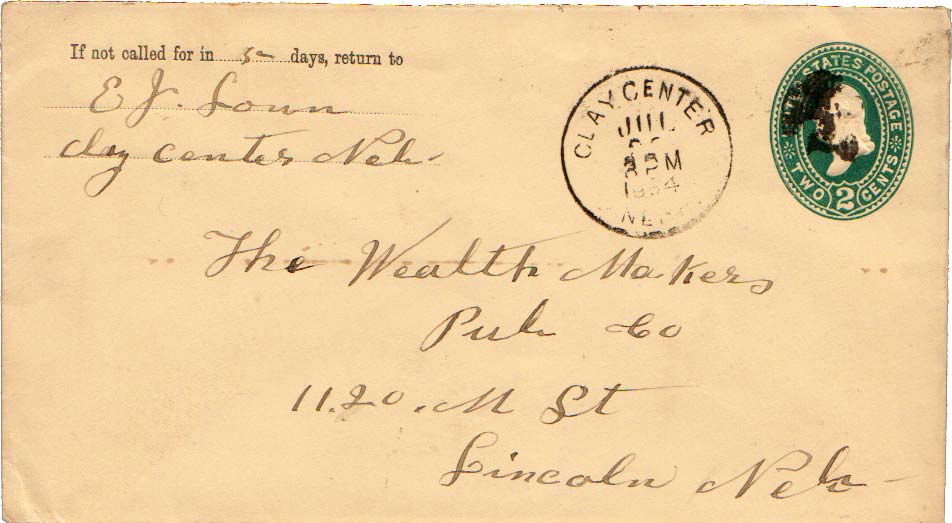 If not called for in 5 days, return to
E J. Lown
Clay Center Neb
CLAY CENTER
JUL
PM
NEB
STATES POSTAGE
TWO 2 CENTS
The Wealth Makers
Pub Co
1120. M St
Lincoln Neb